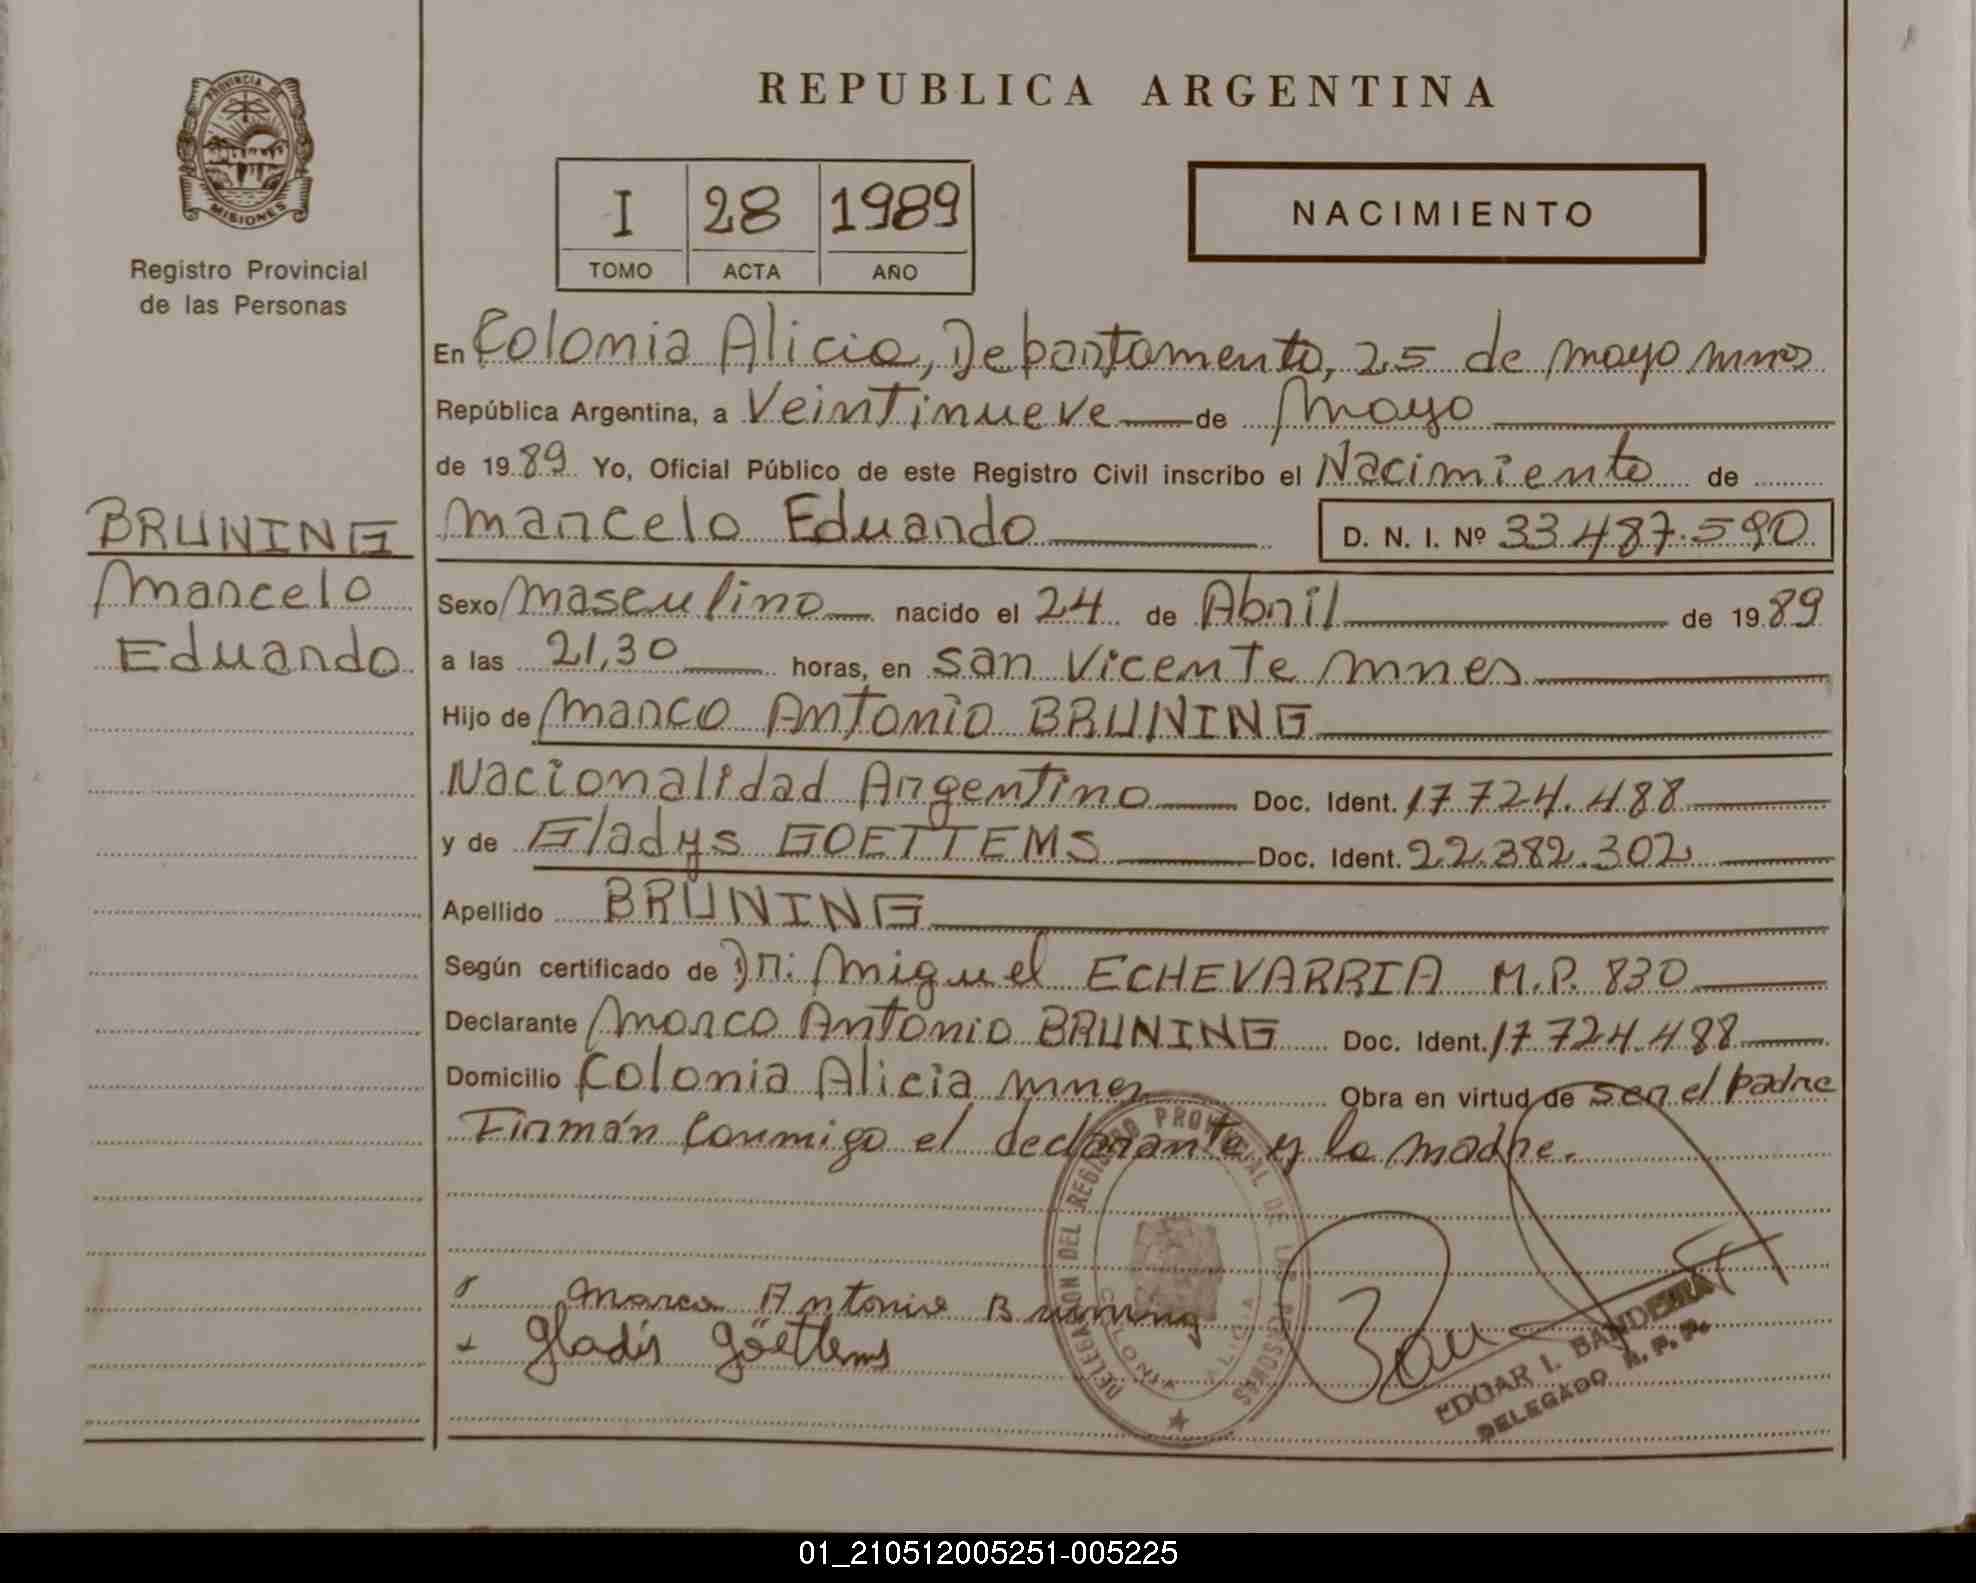 PROVINCIA DE
MISIONES
Registro Provincial
de las Personas
BRUNING
Marcelo
Eduardo
REPUBLICA ARGENTINA
I 28 1989
TOMO ACTA AÑO
NACIMIENTO
En Colonia Alicia, Departamento, 25 de mayo mnes
República Argentina, a Veintinueve de mayo
de 1989 Yo, Oficial Público de este Registro Civil inscribo el Nacimiento de
Marcelo Eduardo D. N. I. Nº 33.487.590
Sexo masculino nacido el 24 de Abril de 1989
a las 21,30 horas, en San Vicente mnes
Hijo de Marco Antonio BRUNING
Nacionalidad Argentino Doc. Ident. 17.724.488
y de Gladys GOETTEMS Doc. Ident. 22.382.302
Apellido BRUNING
Según certificado de Dr: Miguel ECHEVARRIA M.P. 830
Declarante Marco Antonio BRUNING Doc. Ident. 17.724.488
Domicilio Colonia Alicia mnes Obra en virtud de ser el padre
Firmán conmigo el declarante y la madre.
Marco Antonio Bruning
Gladis Göettems
DELEGACION DEL REGISTRO PROVINCIAL DE LAS PERSONAS
COLONIA ALICIA
EDGAR I. BANDEIRA
DELEGADO R. P. P.
01_210512005251-005225